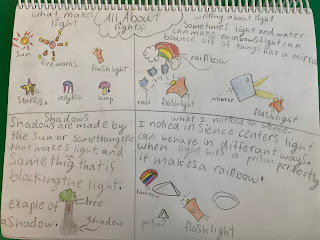 All About
light!
what makes
light
sun
fire works
flash light
starfish
jellyfish
lamp
writing about light
Sometimes light and water
can make rainbows light can
bounce off of things like a mirror
rainbow
rain
flashlight
mirror
flashlight
Shadows
Shadows are made by
the sun or something else
that makes light and
something that is
blocking the light.
exaple of
a shadow.
tree
shadow
what I noticed in sience.
I noticed in sience centers light
can behave in differant ways.
When light hits a prism perfectly
it makes a rainbow.
rainbow
prism
flashlight